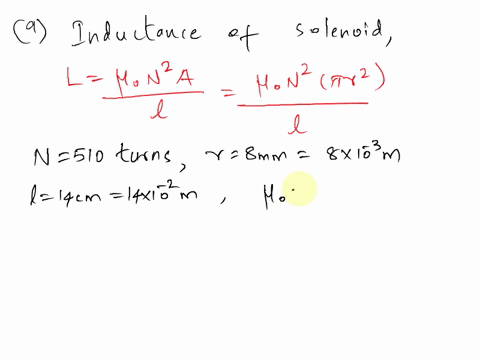 (a) Inductance of solenoid,
L = μ₀N²A / l = μ₀N²(πr²) / l
N = 510 turns, r = 8mm = 8×10⁻³m
l = 14cm = 14×10⁻²m , μ₀